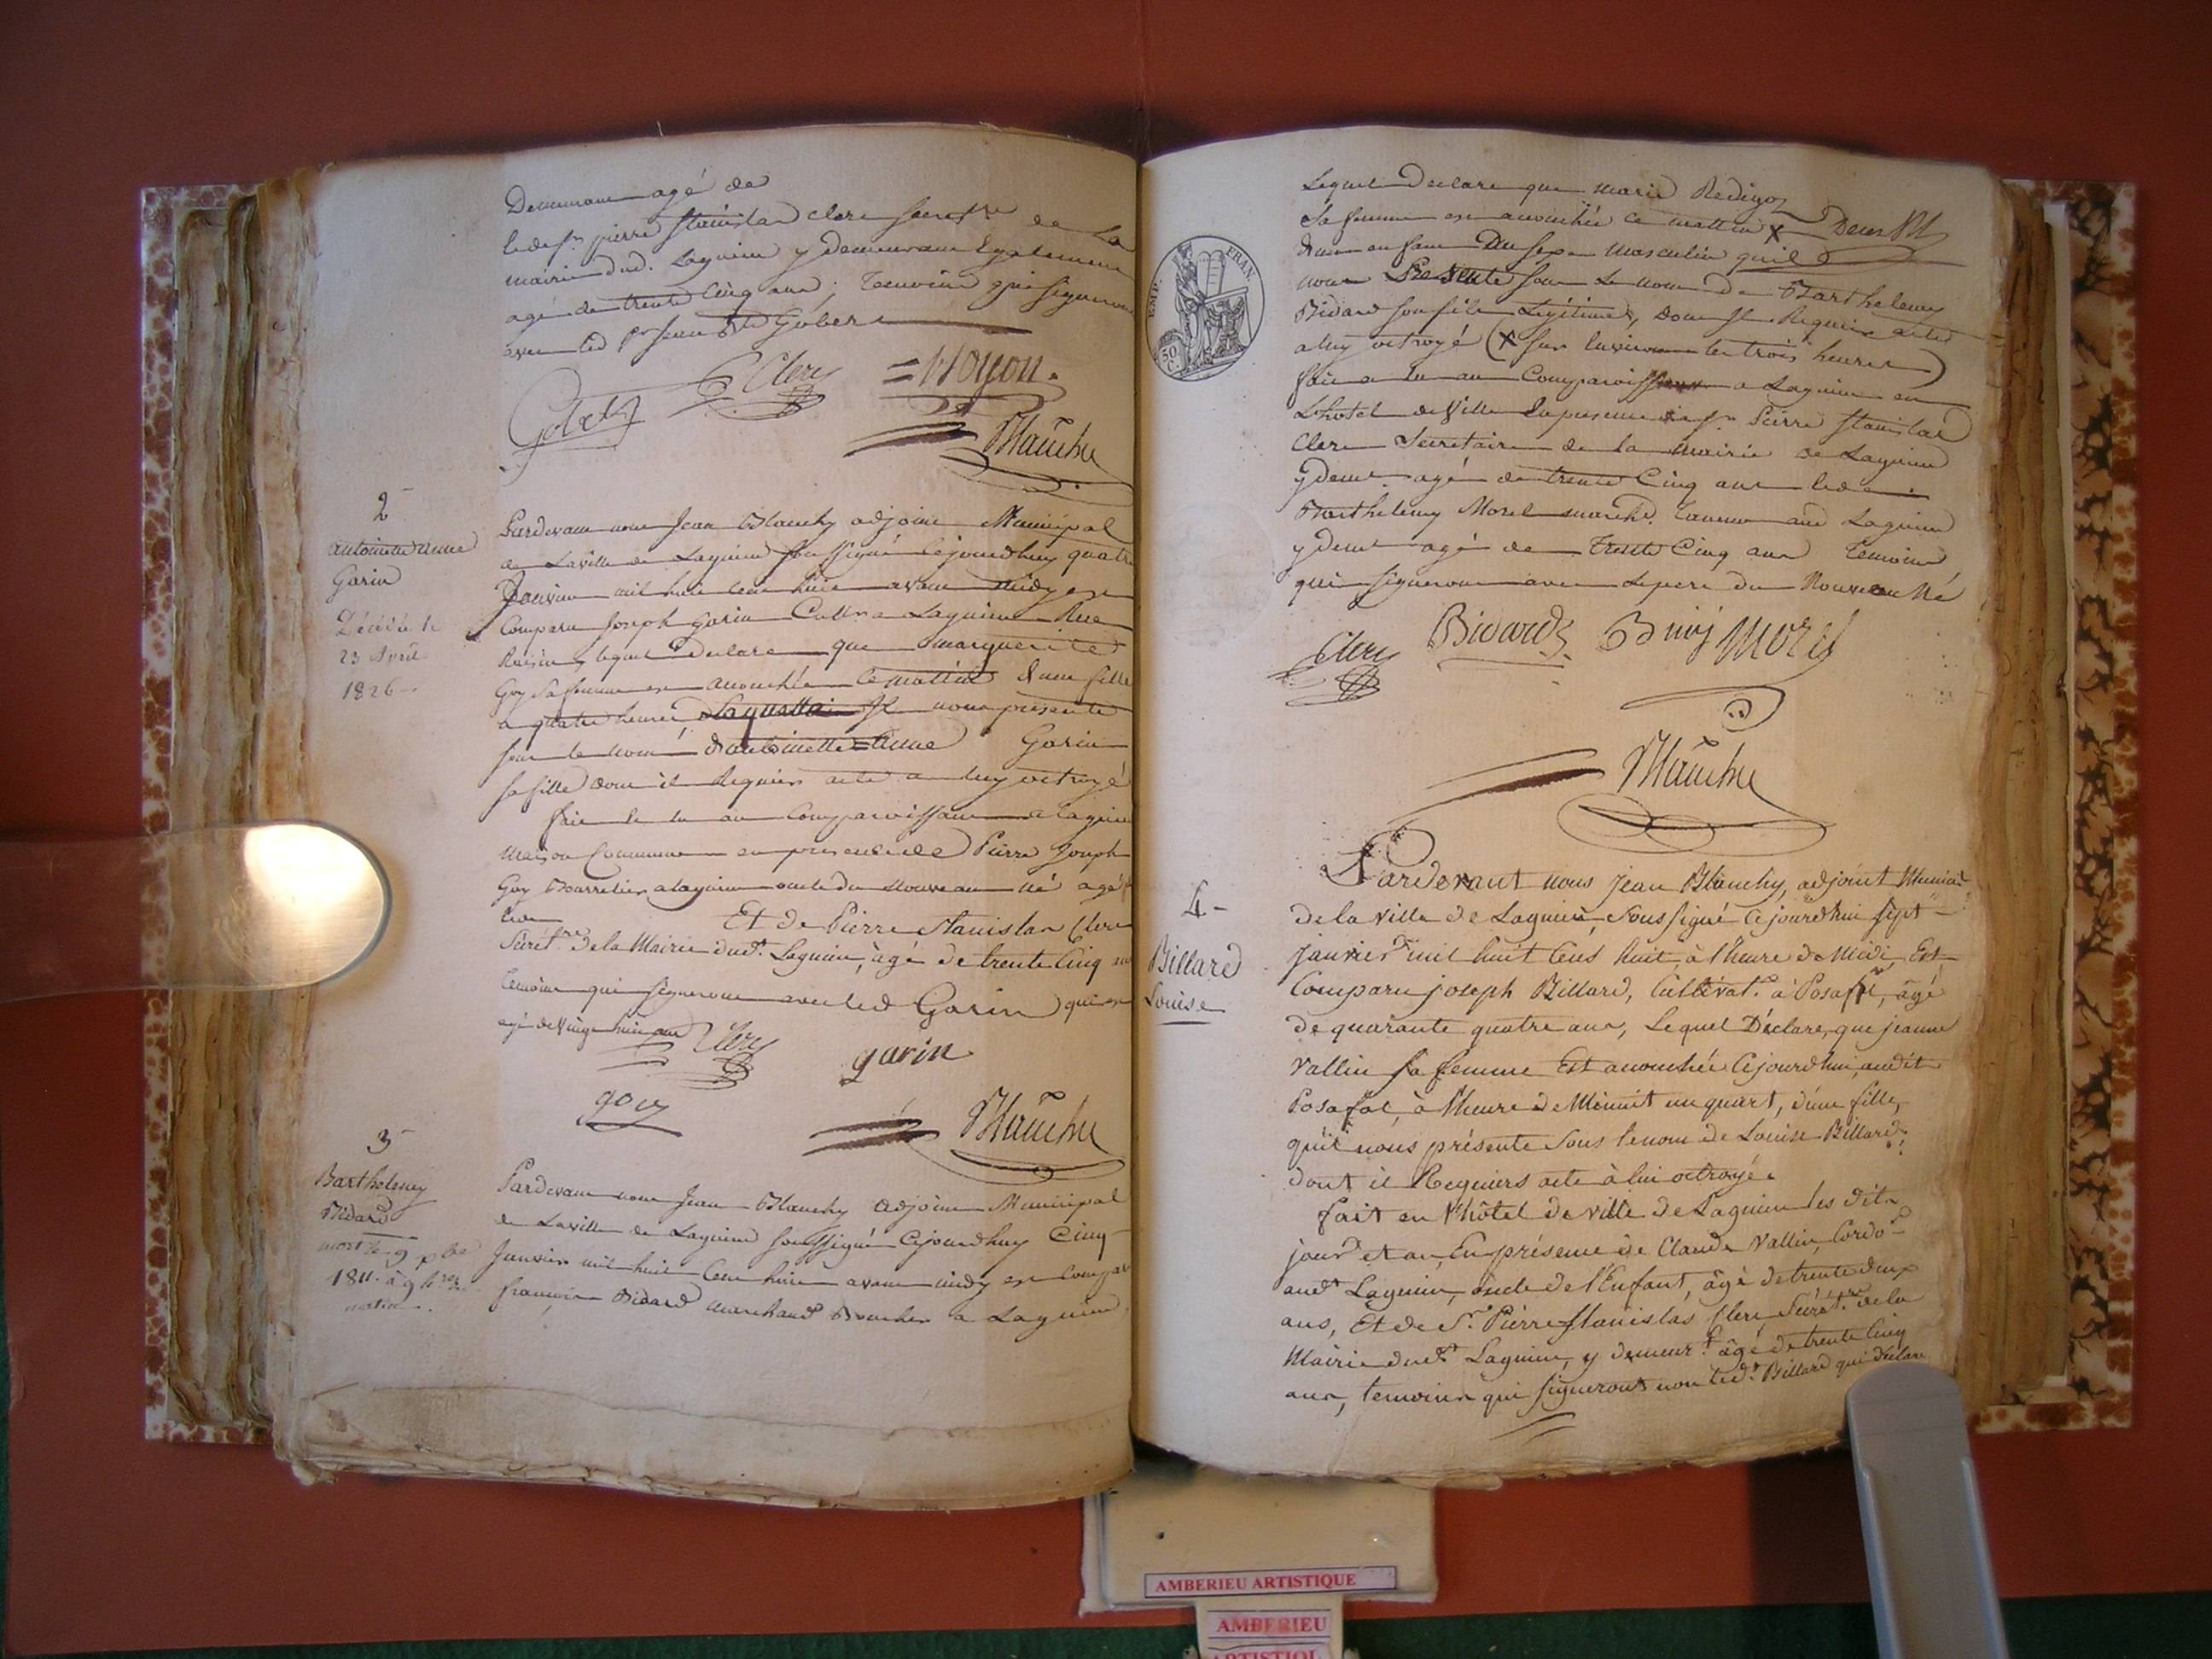 Demeurant agé de
ledt sr pierre stanislas clerc secretre de la
mairie dud. Lagnieu y demeurant Egalement
agé de trente Cinq ans; Temoins qui signeront
avec led sr jean Bte Gobert
Clerc = Noyon.
Gobert
Blanchy
2
antoinette anne
Garin
Décédée le
23 Avril
1826
Pardevant nous Jean Blanchy adjoint Municipal
de La ville de Lagnieu soussigné Cejourdhuy quatre
Janvier mil huit cent huit avant midy est
Comparu joseph garin Cultr a Lagnieu Rue
lequel declare que marguerite
Guy Sa femme est accouchée Ce mattin d'une fille
a quatre heures laquelle Il nous presente
sous le nom d'antoinette = anne Garin
sa fille dont il Requier acte a luy octroyé
fait et lu au Comparoissant a Lagnieu
Maison Commune en presence de Pierre Joseph
Guy Bourrelier a lagnieu oncle du Nouveau né agé
Et de Pierre Stanislas Clerc
Sécretre de la Mairie dudt. Lagnieu, âgé de trente Cinq ans
temoins qui signeront avec led Garin qui est
agé de Vingt huit ans
Clerc garin
goy
Blanchy
3
Barthelemy
Bidard
mort le 9 xbre
1811. à 9 hres du
matin.
Pardevant nous Jean Blanchy adjoint Municipal
de La ville de Lagnieu soussigné Cejourdhuy Cinq
Janvier mil huit Cent huit avant midy est Comparu
francois Bidard marchand Boucher a Lagnieu
EMP. FRAN.
50 C.
Lequel declare que marie
Sa femme est accouchée ce mattin X
d'un enfant Du sexe masculin quil
nous Presente sous Le nom de Barthelemy
Bidard son fils Legitime, dont Il Requier acte
a luy octroyé (X sur lenviron les trois heures)
fait a lu au Comparoissant a Lagnieu en
L'hotel de Ville En presence de sr Pierre stanislas
Clerc Secretaire de la Mairie de Lagnieu
y demt. agé de trente Cinq ans
Barthelemy Morel marchd. Taneur aud Lagnieu
y demt agé de trente Cinq ans Temoins
qui signeront avec Le pere du Nouveau Né
Clerc Bidard Bmy Morel
Blanchy
4
Billard
Louise
Pardevant nous Jean Blanchy, adjoint Municipl
de la ville de Lagnieu, Soussigné Cejourdhui sept
janvier mil huit Cent huit, à l'heure de Midi, Est
Comparu joseph Billard, Cultivatr. à Posafol, âgé
de quarante quatre ans, Lequel Déclare, que jeanne
Vallin sa femme Est accouchée Cejourdhui, audit
Posafol, à l'heure de Minuit un quart, d'une fille,
qu'il nous présente Sous le nom de Louise Billard;
dont il Requiers acte à lui octroyé.
fait en l'hôtel de ville de Lagnieu les dits
jour et an, En présence de Claude Vallin, Cordor
audt Lagnieu, oncle de l'Enfant, âgé de trente deux
ans, Et de Sr. Pierre Stanislas Clerc, Secrétre de la
Mairie dudt Lagnieu, y demeurt. âgé de trente Cinq
ans, temoins qui signeront non ledt. Billard qui déclare
AMBERIEU ARTISTIQUE
AMBERIEU
ARTISTIQU